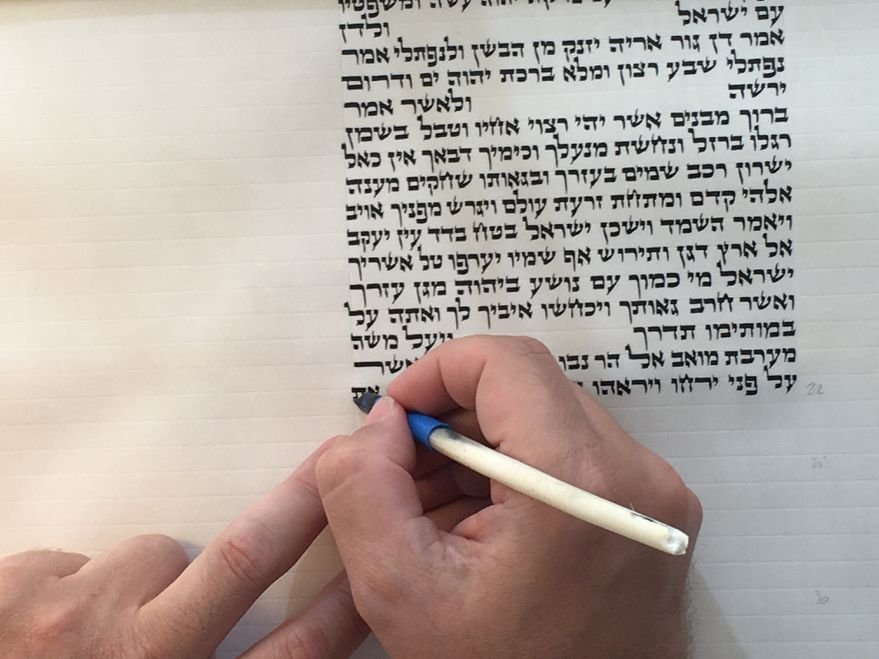 יהוה עשה ומשפטיו
עם ישראל ולדן
אמר דן גור אריה יזנק מן הבשן ולנפתלי אמר
נפתלי שבע רצון ומלא ברכת יהוה ים ודרום
ירשה ולאשר אמר
ברוך מבנים אשר יהי רצוי אחיו וטבל בשמן
רגלו ברזל ונחשת מנעלך וכימיך דבאך אין כאל
ישרון רכב שמים בעזרך ובגאותו שחקים מענה
אלהי קדם ומתחת זרעת עולם ויגרש מפניך אויב
ויאמר השמד וישכן ישראל בטח בדד עין יעקב
אל ארץ דגן ותירוש אף שמיו יערפו טל אשריך
ישראל מי כמוך עם נושע ביהוה מגן עזרך
ואשר חרב גאותך ויכחשו איביך לך ואתה על
במותימו תדרך ויעל משה
מערבת מואב אל הר נבו אשר
על פני ירחו ויראהו את
22